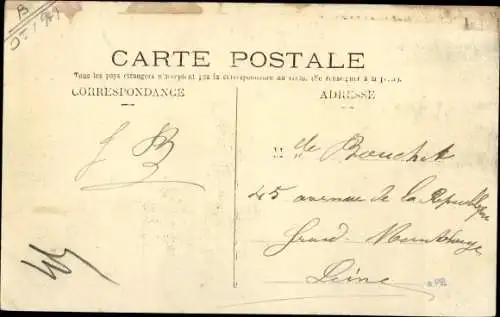 CARTE POSTALE
Tous les pays étrangers n'acceptent pas la correspondance au recto. (Se renseigner à la poste).
CORRESPONDANCE
ADRESSE
J B
Mlle Bouchet
45 avenue de la République
Grand-Montrouge
Seine